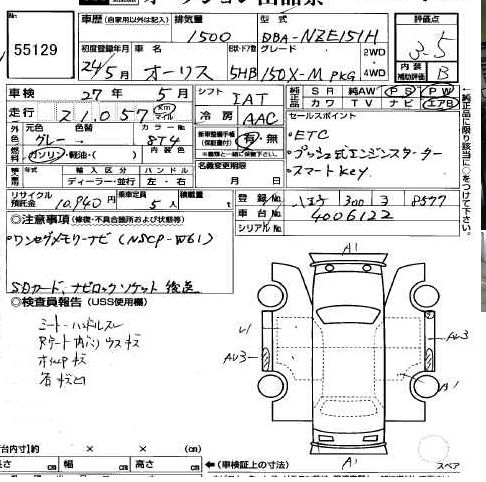 55129
車歴 (自家用以外は記入) 排気量 1500 DBA-NZE151H 評価点 3.5
初度登録年月 24/5 車名 オーリス ドア 5HB グレード 150X-M PKG 2WD 4WD 内装 補助評価 B
車検 27年 5月 シフト IAT 純正品 SR 純AW PS PW
走行 21,057 km マイル 冷房 AAC カワ TV ナビ エアB
外色 元色 グレー 色替 カラーNo 8T4 内装色 新車整備手帳 (保証書付) 有・無
燃料 ガソリン・軽油・( )
セールスポイント
・ETC
・プッシュ式エンジンスターター
・スマートkey.
名義変更期限 月 日
年式 輸入区分 ハンドル
ディーラー・並行 左・右
リサイクル預託金 10,940円 乗車定員 5人 積載量 t
登録No 300 ヌ 8577
車台No 4006122
シリアルNo
◎注意事項 (修復・不具合箇所および状態等)
・ワンセグメモリーナビ (NSCP-W61)
SDカード、ナビロックソケット 後送
◎検査員報告 (USS使用欄)
シート・ハンドルスレ
Rゲート内バリ ウスキズ
各キズ凹
A1
U1
AU3
AU3
A1
A1
台内寸)約 × × (cm)
長さ cm 幅 cm 高さ cm ←(車検証上の寸法)
スペア
↑純正品に限り該当に○をつけて下さい。